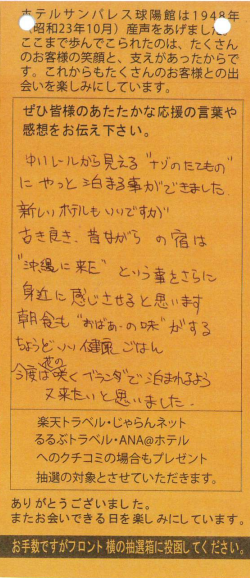 ホテルサンパレス球陽館は1948年
(昭和23年10月)産声をあげました
ここまで歩んでこられたのは、たくさん
のお客様の笑顔と、支えがあったからで
す。これからもたくさんのお客様との出
会いを楽しみにしています。
ぜひ皆様のあたたかな応援の言葉や
感想をお伝え下さい。
ゆいレールから見える "ナゾのたてもの"
にやっと泊まる事ができました
新しいホテルもいいですが
古き良き、昔ながら の宿は
"沖縄に来た" という事をさらに
身近に感じさせると思います
朝食も "おばあーの味" がする
ちょうどいい健康ごはん
今度は花の咲くベランダで泊まれるよう
又来たいと思いました.
楽天トラベル・じゃらんネット
るるぶトラベル・ANA@ホテル
へのクチコミの場合もプレゼント
抽選の対象とさせていただきます。
ありがとうございました。
またお会いできる日を楽しみにしています。
お手数ですがフロント横の抽選箱に投函してください。